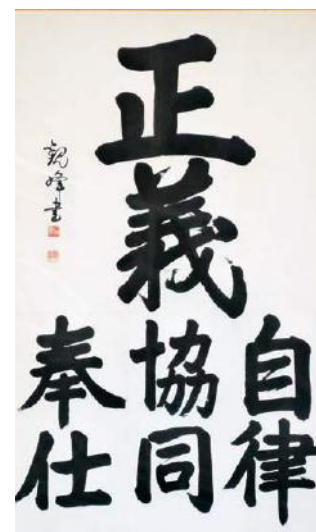 正義
自律
協同
奉仕
観峰書